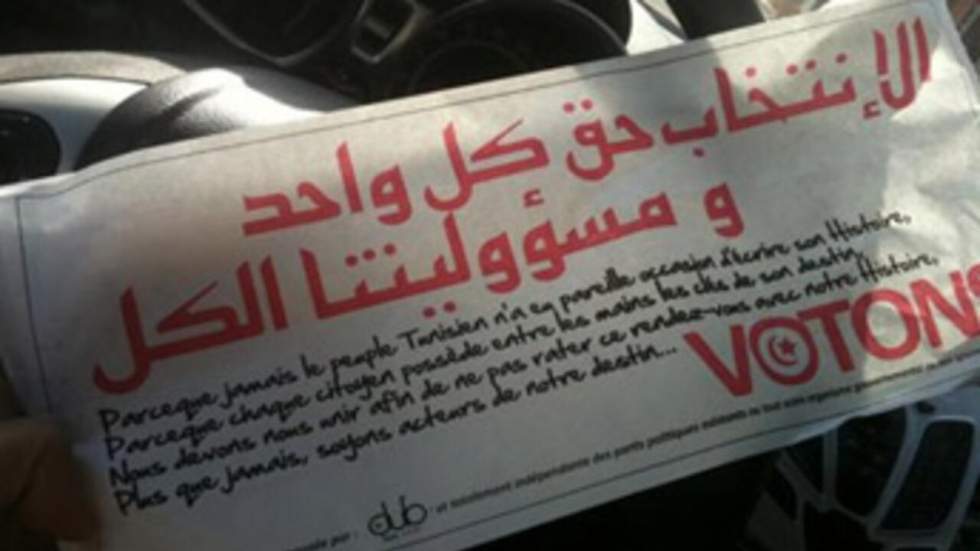 الإنتخاب حق كل واحد
و مسؤوليتنا الكل
Parceque jamais le peuple Tunisien n'a eu pareille occasion d'écrire son Histoire,
Parceque chaque citoyen possède entre les mains les clés de son destin,
Nous devons nous unir afin de ne pas rater ce rendez-vous avec notre Histoire,
Plus que jamais, soyons acteurs de notre destin...
VOTONS
par : club et totalement indépendante des partis politiques existants ou tout autre organisme